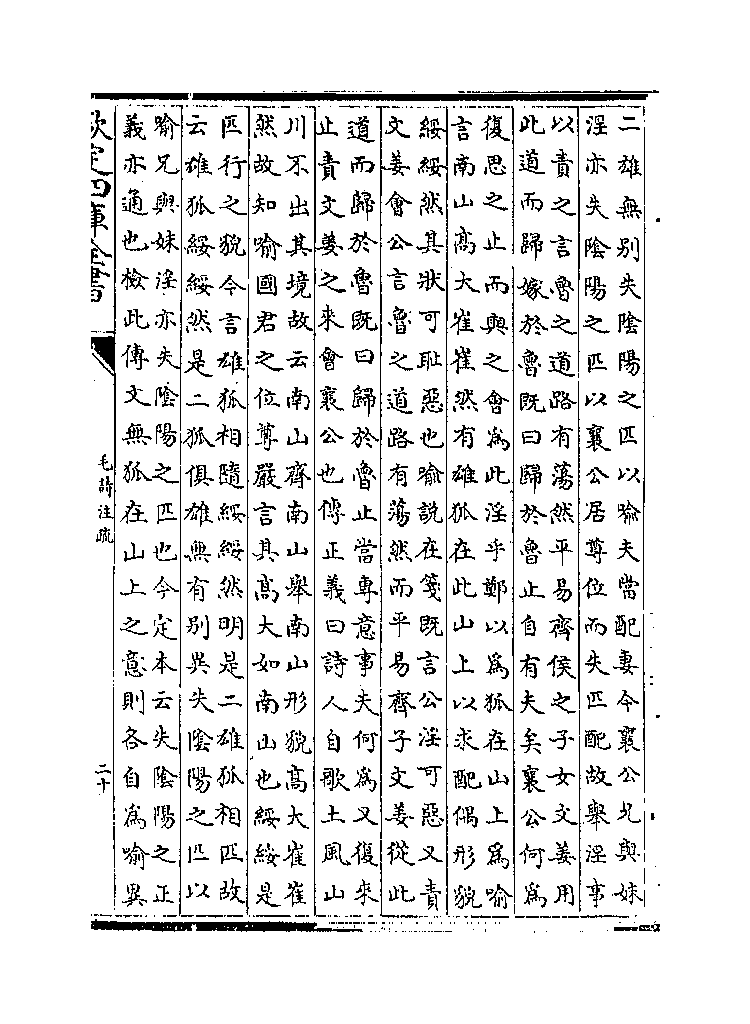 二雄無別失隂陽之匹以喻夫當配妻今襄公兄與妹
淫亦失隂陽之匹以襄公居尊位而失匹配故舉淫事
以責之言魯之道路有蕩然平易齊侯之子女文姜用
此道而歸嫁於魯既曰歸於魯止自有夫矣襄公何為
復思之止而與之會為此淫乎鄭以為狐在山上為喻
言南山髙大崔崔然有雄狐在此山上以求配偶形貌
綏綏然其狀可耻惡也喻說在箋既言公淫可惡又責
文姜會公言魯之道路有蕩然而平易齊子文姜從此
道而歸於魯既曰歸於魯止當專意事夫何為又復來
止責文姜之來會襄公也傳正義曰詩人自歌土風山
川不出其境故云南山齊南山舉南山形貌髙大崔崔
然故知喻國君之位尊嚴言其髙大如南山也綏綏是
匹行之貌今言雄狐相隨綏綏然明是二雄狐相匹故
云雄狐綏綏然是二狐俱雄無有别異失隂陽之匹以
喻兄與妹淫亦失隂陽之匹也今定本云失隂陽之正
義亦通也檢此傳文無狐在山上之意則各自為喻異
欽定四庫全書
毛詩注疏
二十